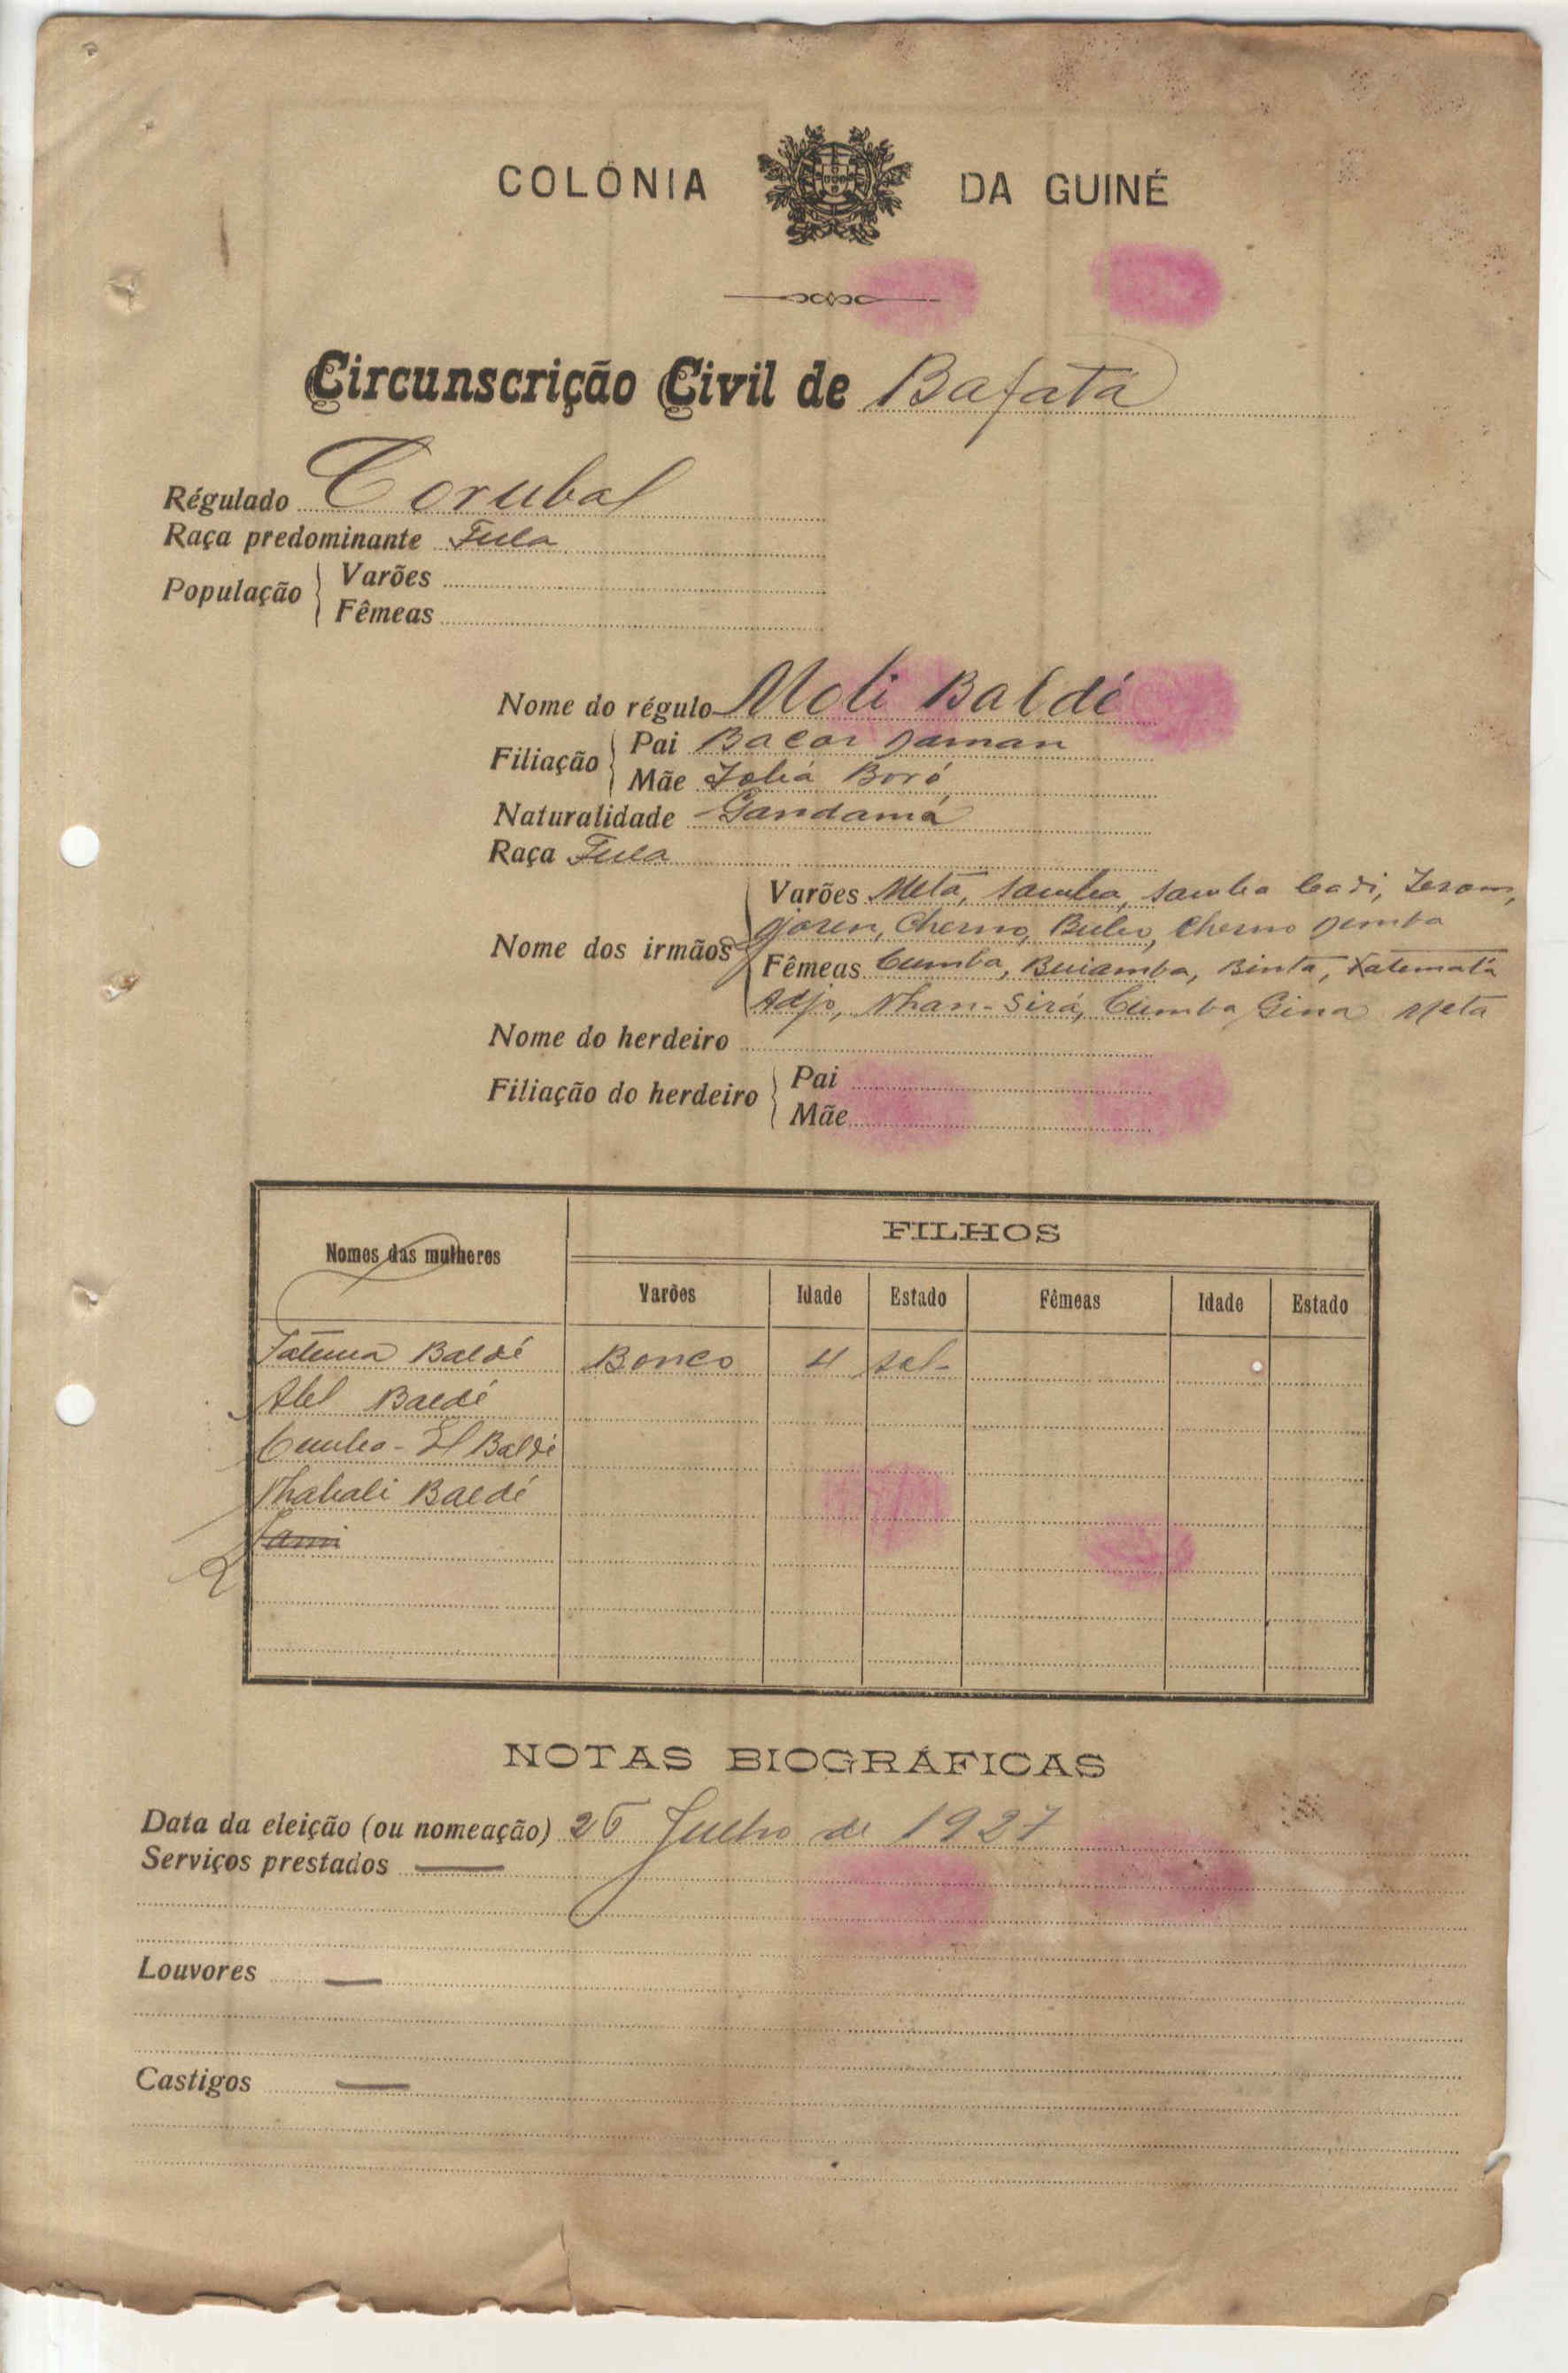 COLÓNIA DA GUINÉ
Circunscrição Civil de Bafatá
Régulado Corubal
Raça predominante Fula
População
Varões
Fêmeas
Nome do régulo Moli Baldé
Filiação
Pai Bacar Daman
Mãe Boró
Naturalidade Gandamá
Raça Fula
Nome dos irmãos
Varões Metá, Samba, Samba
Cherno, Cherno Demba
Fêmeas Cumba, Buiamba, Binta, Fatematá
Adjo, Nhan-Sirá, Cumba Gina Meta
Nome do herdeiro
Filiação do herdeiro
Pai
Mãe
Nomes das mulheres
FILHOS
Varões Idade Estado Fêmeas Idade Estado
Fatuma Baldé Bonco 4 sol-
Baldé
Baldé
Nhabali Baldé
NOTAS BIOGRÁFICAS
Data da eleição (ou nomeação) 26 Julho de 1927
Serviços prestados
Louvores
Castigos